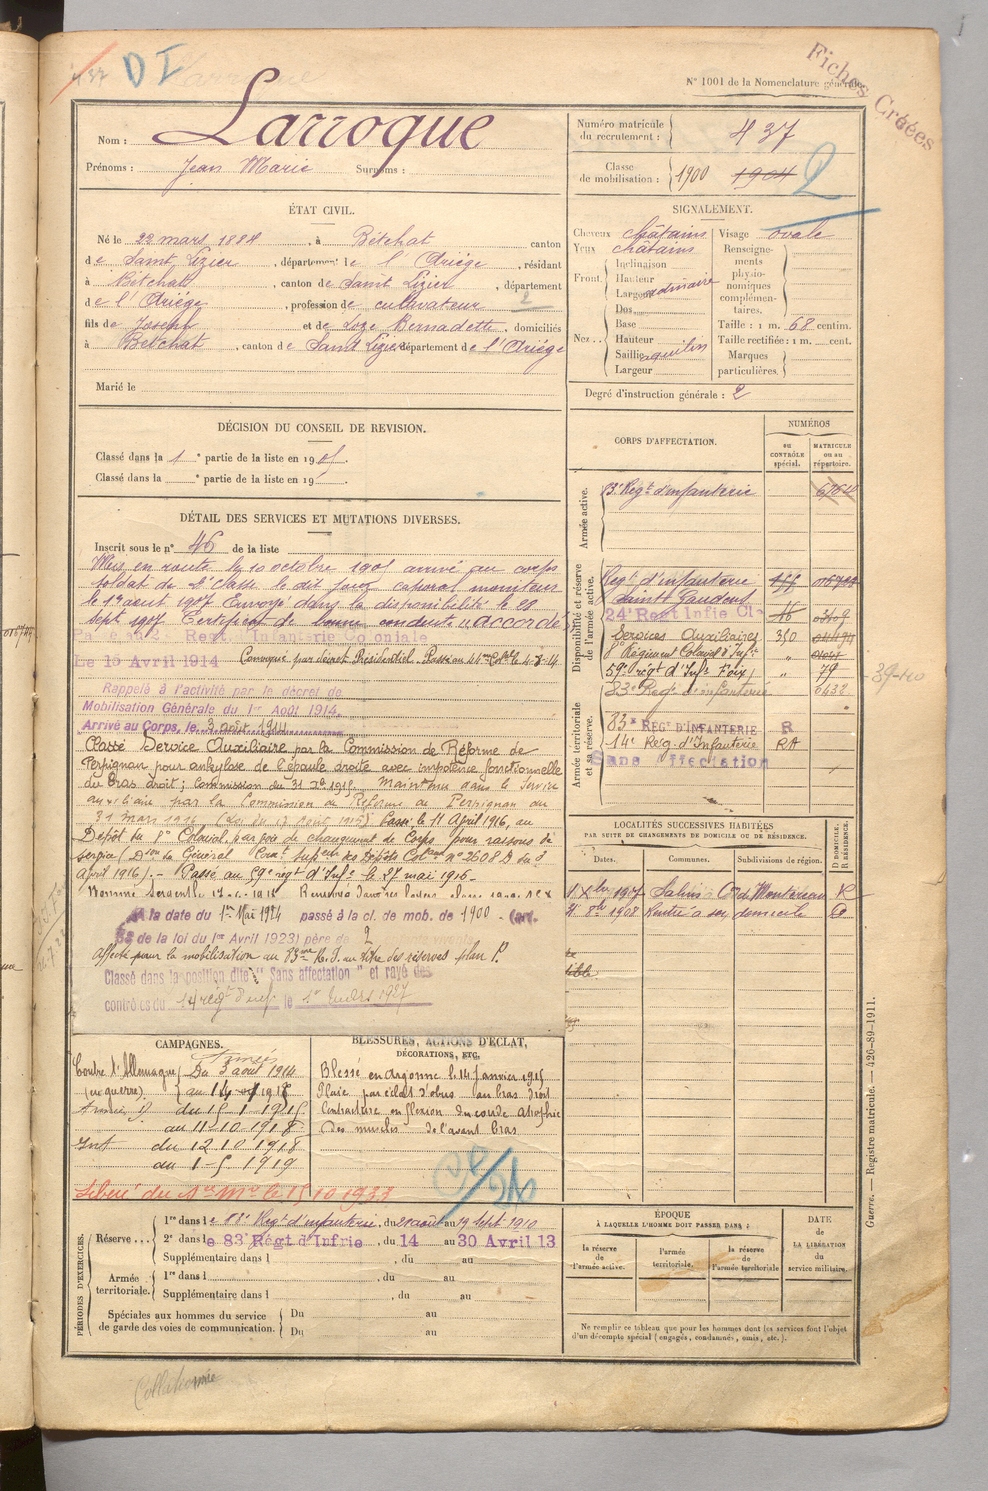 437 D I
N° 1001 de la Nomenclature générale.
Fiches Créées
Nom : Larroque
Prénoms : Jean Marie Surnoms :
Numéro matricule du recrutement : 437
Classe de mobilisation : 1900 1904
2
ÉTAT CIVIL.
Né le 22 mars 1884, à Bétchat canton
de Saint Lizier, département de l'Ariège, résidant
à Bétchat, canton de Saint Lizier, département
de l'Ariège, profession de cultivateur
2
fils de Joseph et de Loze Bernadette, domiciliés
à Betchat, canton de Saint Lizier département de l'Ariége
Marié le
SIGNALEMENT.
Cheveux châtains
Yeux châtains
Front. Inclinaison
Hauteur
Largeur ordinaire
Nez. Dos
Base
Hauteur
Saillie aquilin
Largeur
Visage ovale
Renseignements physionomiques complémentaires.
Taille : 1 m. 68 centim.
Taille rectifiée : 1 m. cent.
Marques particulières.
Degré d'instruction générale : 2
DÉCISION DU CONSEIL DE REVISION.
Classé dans la 1e partie de la liste en 1905.
Classé dans la e partie de la liste en 19 .
DÉTAIL DES SERVICES ET MUTATIONS DIVERSES.
Inscrit sous le n° 46 de la liste
Mis en route le 10 octobre 1905 arrivé au corps
soldat de 2e classe le dit jour caporal moniteur
le 1er aout 1907 Envoyé dans la disponibilité le 28
sept 1907 Certificat de bonne conduite "accordé"
Passé au 2e Regt d'Infanterie Coloniale
Le 15 Avril 1914 Convoqué par décret Présidentiel.
Rappelé à l'activité par le décret de
Mobilisation Générale du 1er Août 1914.
Arrivé au Corps, le 3 août 1914
Classé Service Auxiliaire par la Commission de Réforme de
Perpignan pour ankylose de l'épaule droite avec impotence fonctionnelle
du bras droit ; Commission du 31 Xbre 1915. Maintenu dans le Service
auxiliaire par la Commission de Réforme de Perpignan du
31 mars 1916 (Loi du 17 Août 1915) Passé le 11 Avril 1916, au
Dépôt du 8e Colonial, par voie de changement de Corps pour raisons de
service (Don du Général Comt Supr des Dépôts Colaux n° 2608 D du 3
Avril 1916). - Passé au 59e régt d'Infie le 27 mai 1916 -
Nommé Sergent le
A la date du 1er Mai 1924 passé à la cl. de mob. de 1900 - (art.
58 de la loi du 1er Avril 1923) père de 2
affecté pour la mobilisation au 83me R. I. au titre des réserves plan P.
Classé dans la position dite "Sans affectation" et rayé des
contrôles du 14 régt d'inf. le 1er 1927
CORPS D'AFFECTATION.
NUMÉROS
au CONTRÔLE spécial.
MATRICULE ou au répertoire.
Armée active.
83e Régt d'infanterie 6764
Disponibilité et réserve de l'armée active.
Regt d'infanterie
Saint Gaudens
24e Regt Infie Cle 16
Services Auxiliaires 350
8e Régiment Colonial d'Inf. "
59e régt d'Infie Foix "  79
83e Régt d'infanterie 6438
39-40
Armée territoriale et sa réserve.
83e REGt D'INFANTERIE R
14e Rég. d'Infanterie RA
Sans Affectation
LOCALITÉS SUCCESSIVES HABITÉES
PAR SUITE DE CHANGEMENTS DE DOMICILE OU DE RÉSIDENCE.
Dates. Communes. Subdivisions de région. D DOMICILE, R RÉSIDENCE.
1 Xbre 1907 Salins Con de Montereau R
1908 Rentré à son domicile
CAMPAGNES.
Contre l'Allemagne Du 3 août 1914
(en guerre)
Armées du 15 1 1915
au 11-10 1918
Int du 12 10 1918
au 1-5 1919
Libéré du Sce Mre le 15 10 1933
BLESSURES, ACTIONS D'ÉCLAT, DÉCORATIONS, ETC.
Blessé en Argonne le 14 Janvier 1915
Plaie par éclat d'obus au bras droit
Contracture en flexion du coude atrophie
des muscles de l'avant bras
PÉRIODES D'EXERCICES.
Réserve... 1re dans le 88e Régt d'infanterie, du 28 août au 19 Sept 1910
2e dans le 83e Régt d'Infrie, du 14 au 30 Avril 13
Supplémentaire dans l , du au
Armée territoriale. 1re dans l , du au
Supplémentaire dans l , du au
Spéciales aux hommes du service de garde des voies de communication. Du au
Du au
ÉPOQUE
À LAQUELLE L'HOMME DOIT PASSER DANS :
la réserve de l'armée active.
l'armée territoriale.
la réserve de l'armée territoriale
DATE DE LA LIBÉRATION du service militaire.
Ne remplir ce tableau que pour les hommes dont les services font l'objet
d'un décompte spécial (engagés, condamnés, omis, etc.).
Guerre. — Registre matricule. — 426-89-1911.
Collationnée